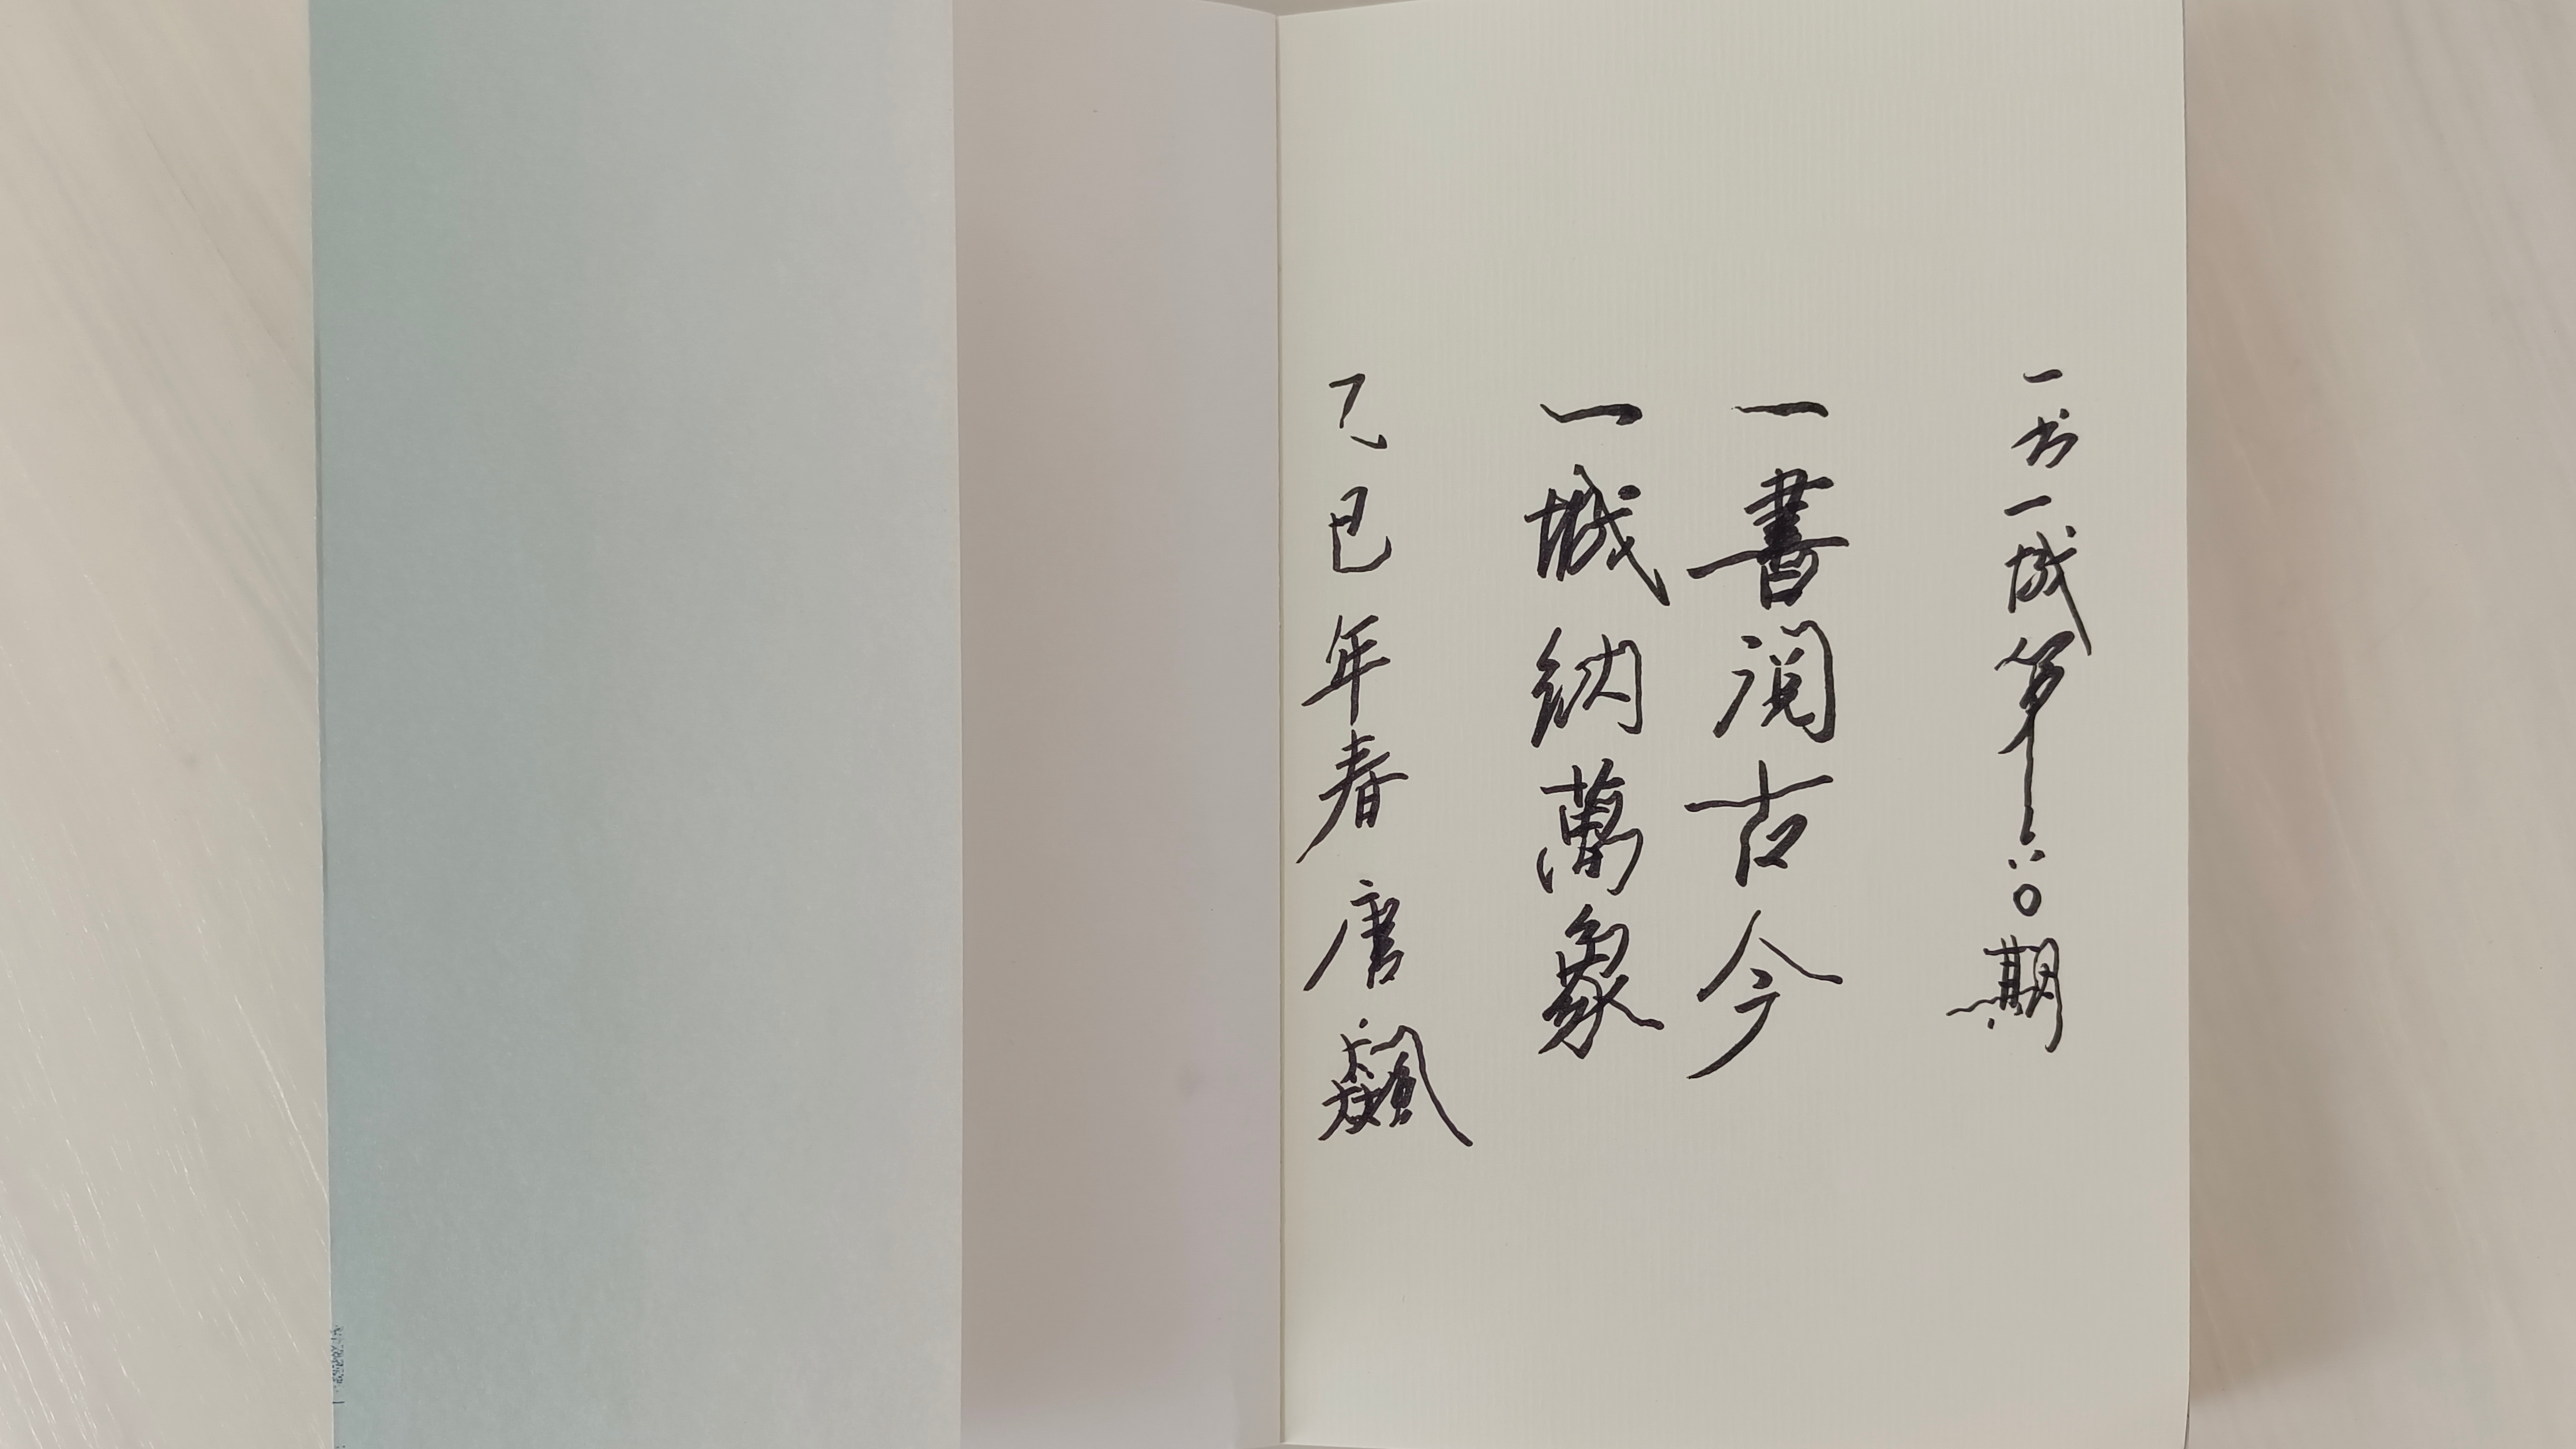 一书一城第〇期
一書閲古今
一城納萬象
乙巳年春 唐飆